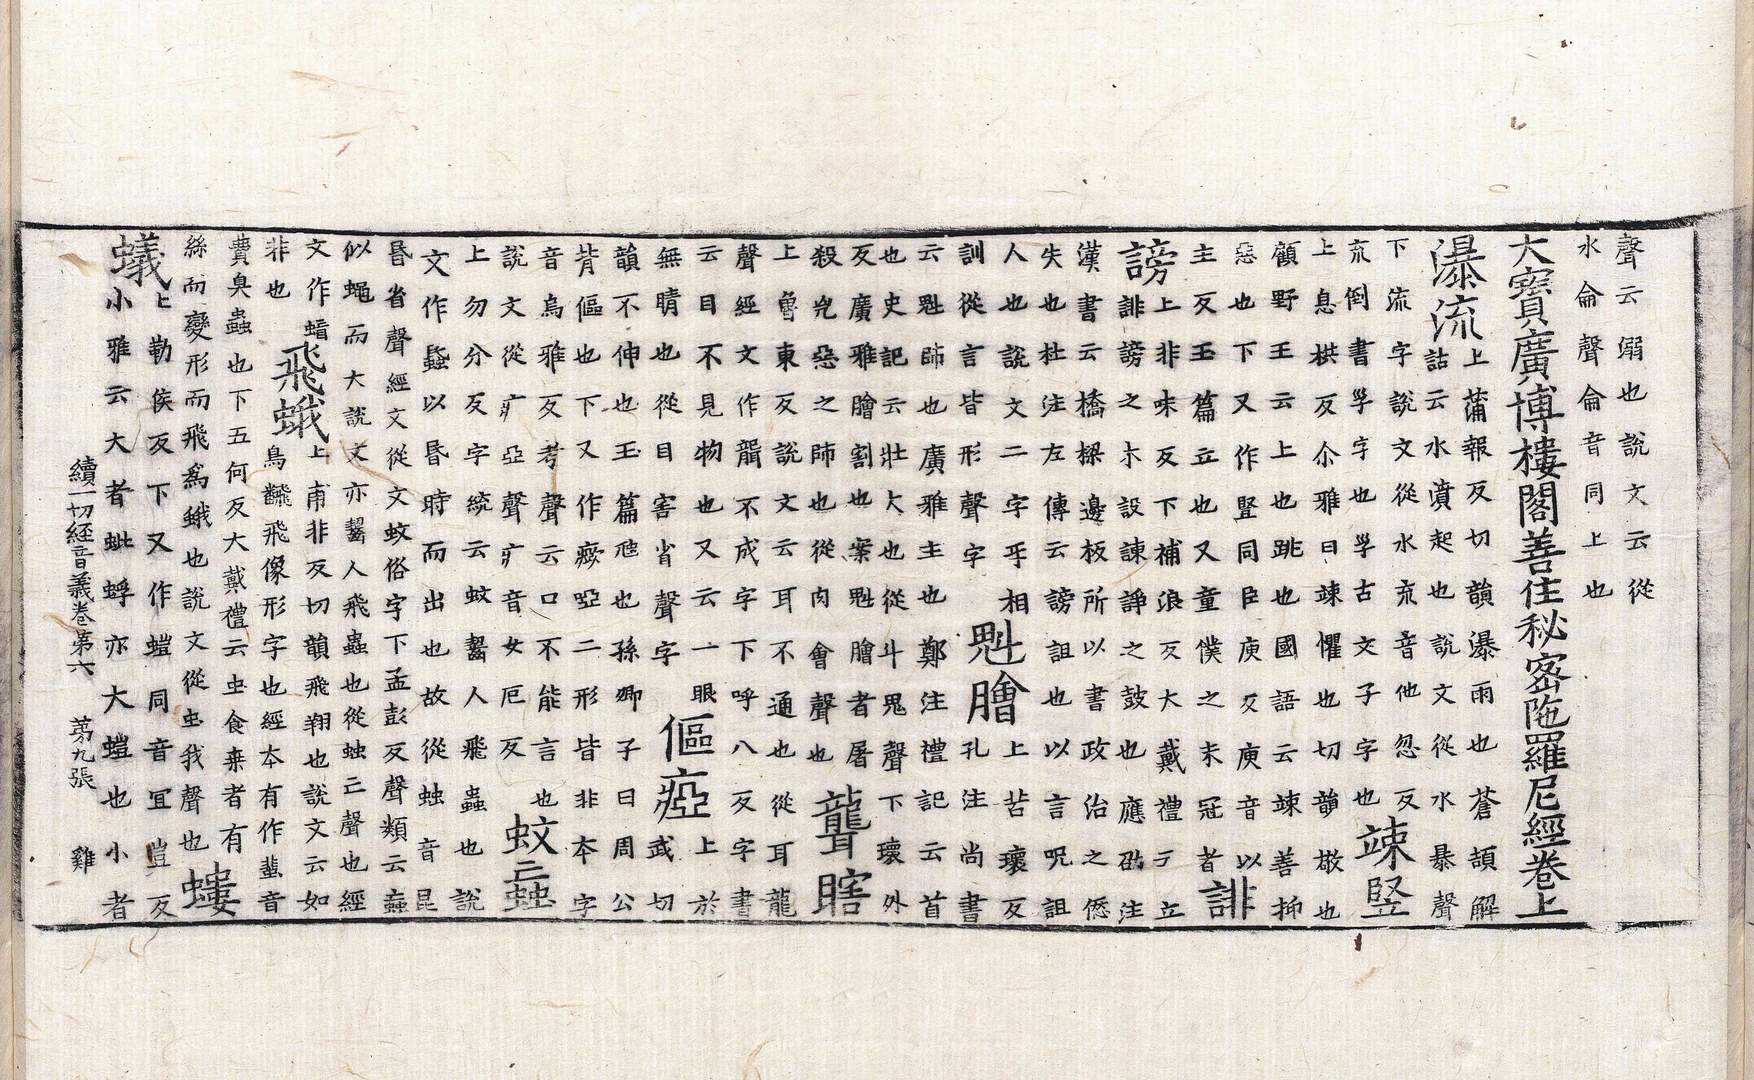 聲云溺也說文云從
水侖聲侖音同上也
大寶廣博樓閣善住秘密陁羅尼經卷上
瀑流上蒲報反切韻瀑雨也蒼頡解
詁云水濆起也說文從水暴聲
下流字說文從水㐬音他忽反
㐬倒書㜽字也㜽古文子字也竦竪
上息栱反尒雅曰竦懼也切韻敬也
顧野王云上也跳也國語云竦善抑
惡也下又作竪同臣庾反庾音以
主反玉篇立也又童僕之未冠者誹
謗上非味反下補浪反大戴禮云立
誹謗之木設諫諍之鼓也應劭注
漢書云橋樑邊板所以書政治之愆
失也杜注左傳云謗詛也以言呪詛
人也說文二字乎相
訓從言皆形聲字魁膾上苦瓌反
孔注尚書
云魁師也廣雅主也鄭注禮記云首
也史記云壯大也從斗鬼聲下瓌外
反廣雅膾割也案魁膾者屠
殺兇惡之師也從肉會聲也聾瞎
上魯東反說文云耳不通也從耳龍
聲經文作聾不成字下呼八反字書
云目不見物也又云一眼
無睛也從目害省聲字傴瘂上於
武切
韻不伸也玉篇尫也孫卿子曰周公
背傴也下又作瘂啞二形皆非本字
音烏雅反考聲云口不能言也
說文從疒亞聲疒音女厄反蚊䖟
上勿分反字統云蚊齧人飛蟲也說
文作蟁以昬時而出也故從䖵音昆
昬省聲經文從文蚊俗字下孟彭反聲類云蝱
似蠅而大說文亦齧人飛蟲也從䖵亡聲也經
文作
非也飛蛾上甫非反切韻飛翔也說文云如
鳥飛像形字也經本有作蜚音
費臭蟲也下五何反大戴禮云虫食桒者有
絲而變形而飛爲蛾也說文從虫我聲也螻
蟻上勒侯反下又作螘同音冝豈反
小雅云大者蚍蜉亦大螘也小者
續一切經音義卷第六 第九張 雞